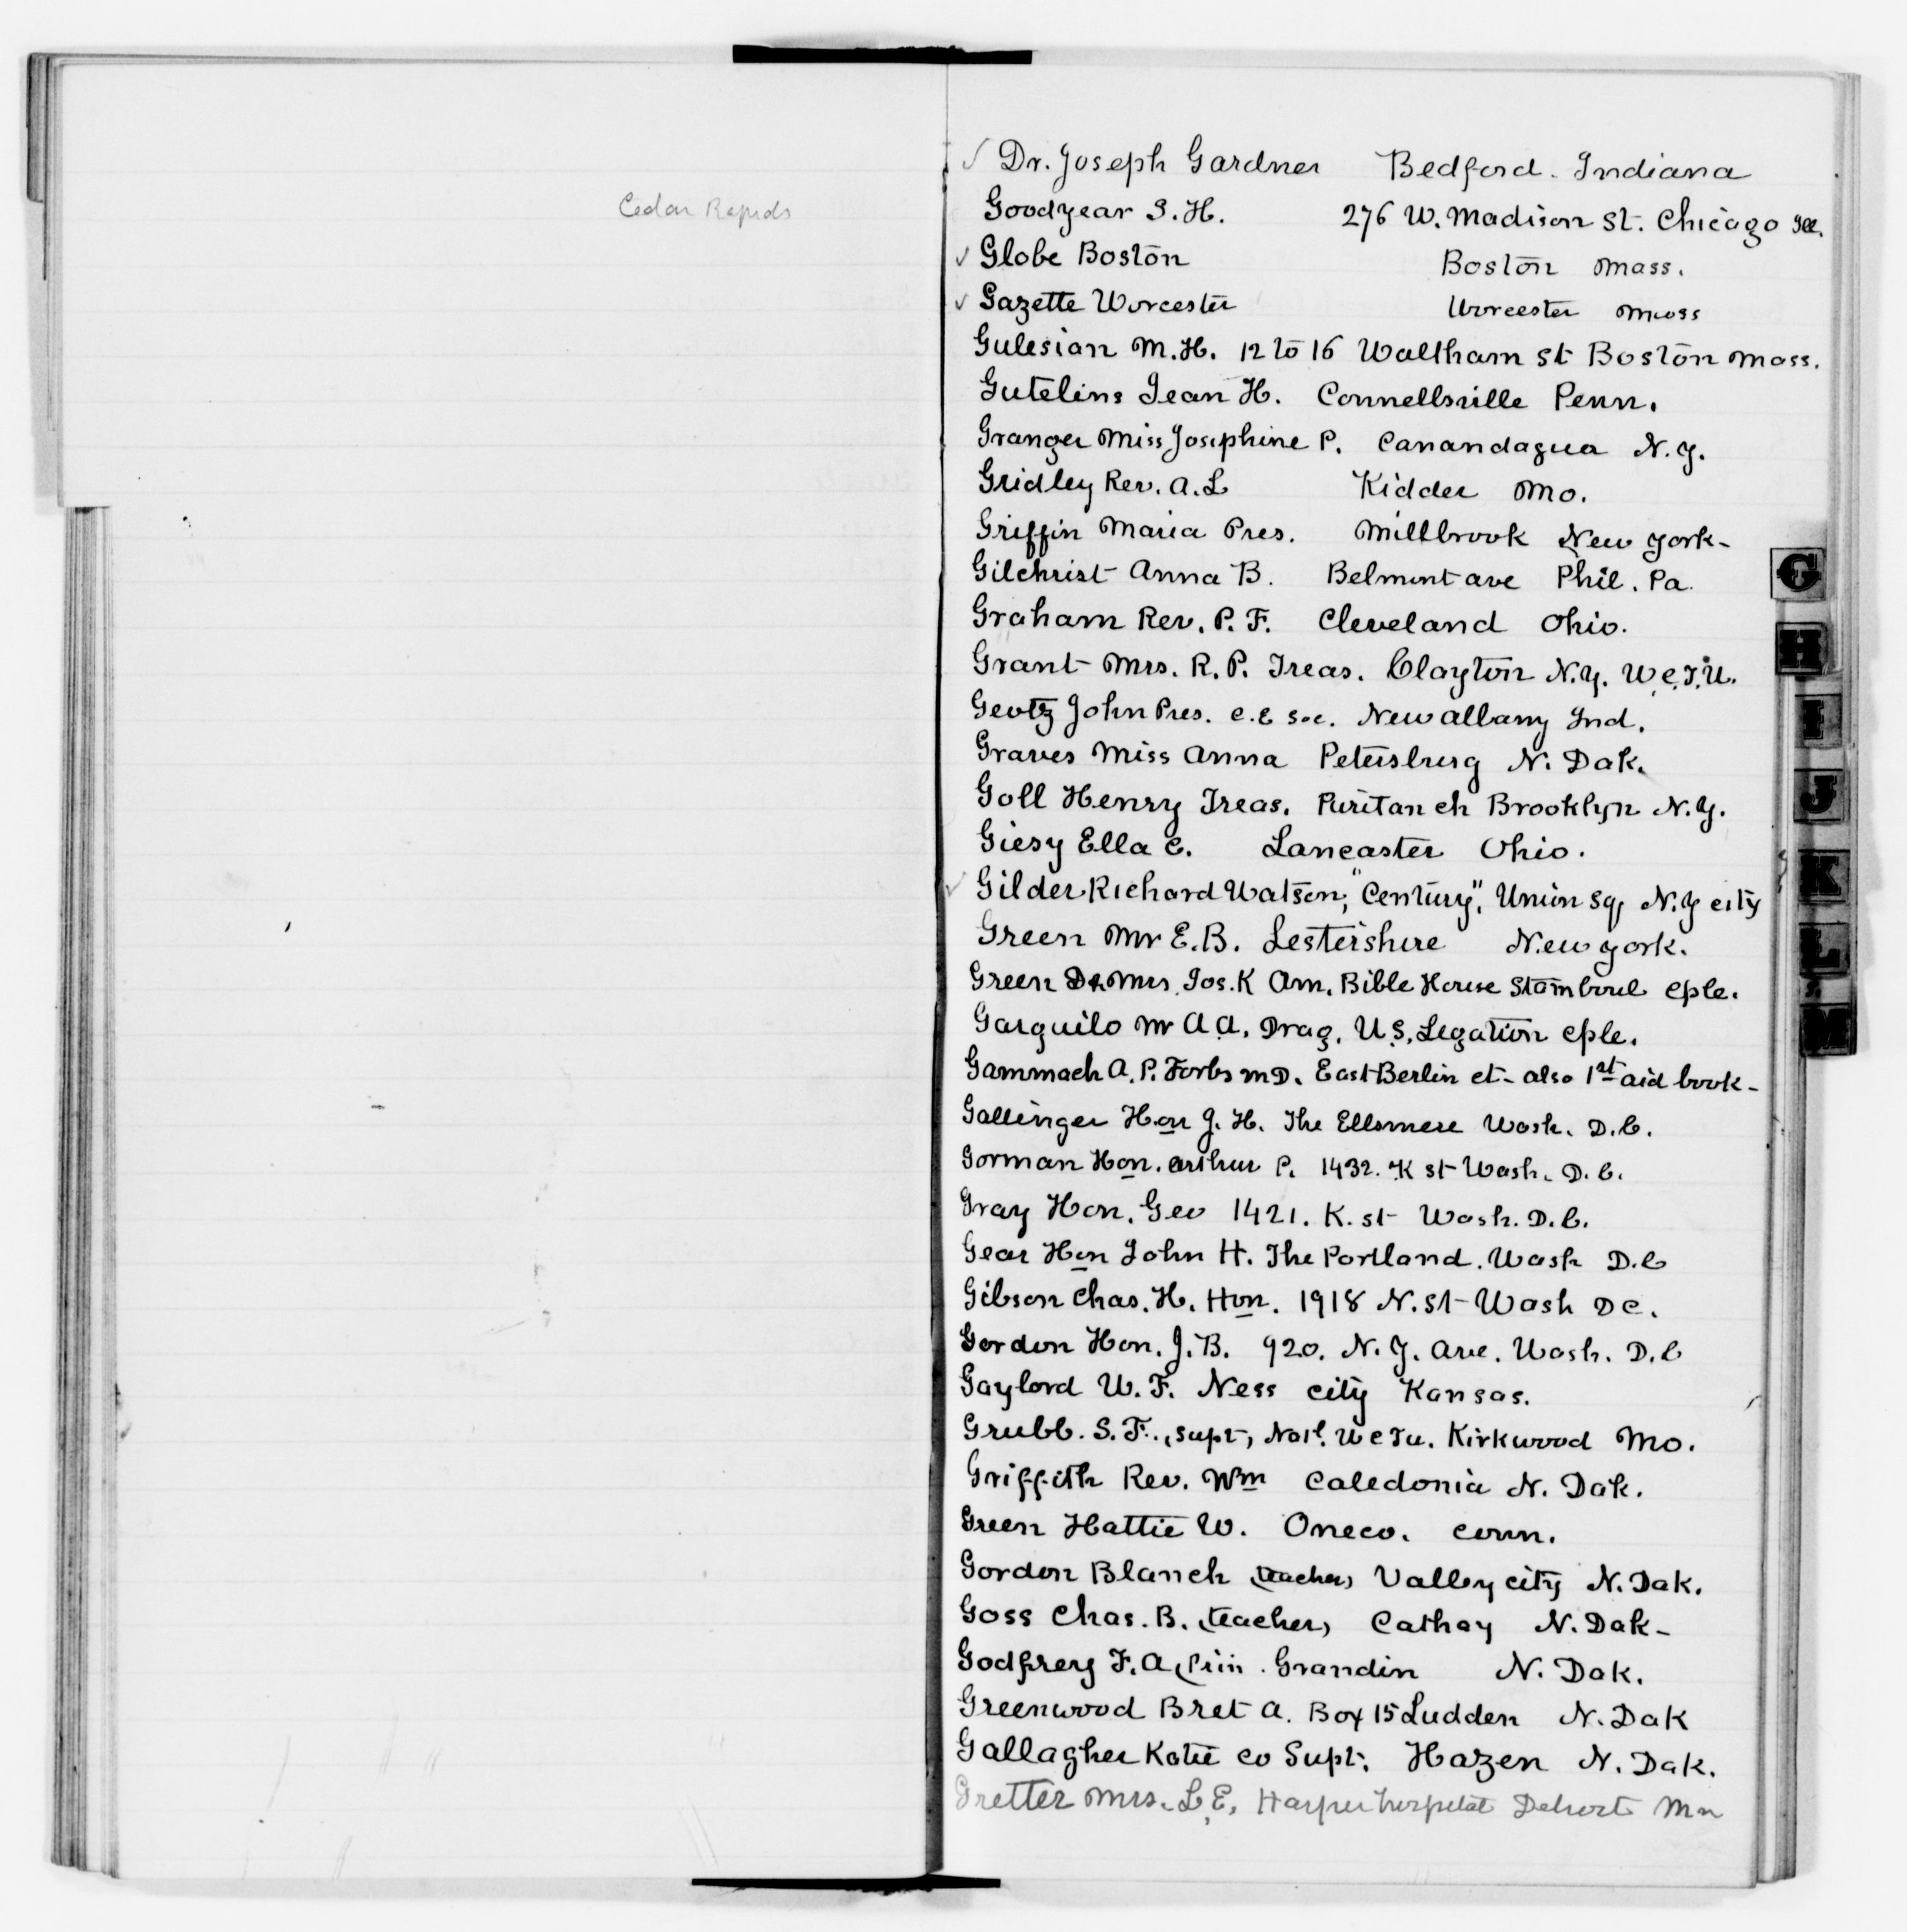 Cedar Rapids
✓ Dr. Joseph Gardner Bedford. Indiana
Goodyear S. H. 276 W. Madison St. Chicago Ill.
✓ Globe Boston Boston Mass.
✓ Gazette Worcester Worcester Mass
Gulesian M. H. 12 to 16 Waltham St Boston Mass.
Gutelins Jean H. Connellsville Penn.
Granger Miss Josephine P. Canandagua N. Y.
Gridley Rev. A. L Kidder Mo.
Griffin Maria Pres. Millbrook New York-
Gilchrist Anna B. Belmont ave Phil. Pa.
Graham Rev. P. F. Cleveland Ohio.
Grant Mrs. R. P. Treas. Clayton N.Y. W.C.T.U.
Geotz John Pres. C. E Soc. New albany Ind.
Graves Miss Anna Petersburg N. Dak.
Goll Henry Treas. Puritan ch Brooklyn N.Y.
Giesy Ella C. Lancaster Ohio.
✓ Gilder Richard Watson, "Century", Union Sq, N.Y city
Green Mr E. B. Lestershire New York.
Green Dr Mrs. Jos. K Am. Bible House Stamboul Cple.
Garguilo Mr A. A. Drag. U.S. Legation Cple.
Gammach A. P. Forbs M D. East Berlin ct- also 1st aid book-
Gallinger Hon J. H. The Ellsmere Wash. D.C.
Gorman Hon. Arthur P. 1432. K st Wash. D. C.
Gray Hon. Geo 1421. K. st Wash. D.C.
Gear Hon John H. The Portland. Wash D.C
Gibson Chas. H. Hon. 1918 N. St- Wash D C.
Gordon Hon. J. B. 920. N. J. Ave. Wash. D. C
Gaylord W. F. Ness city Kansas.
Grubb. S. F., supt, Natl. W C T U. Kirkwood Mo.
Griffith Rev. Wm Caledonia N. Dak.
Green Hattie W. Oneco. conn.
Gordon Blanch (teacher) Valley city N. Dak.
Goss Chas. B. (teacher) Cathay N. Dak-
Godfrey F. A (Prin. Grandin N. Dak.
Greenwood Bret A. Box 15 Ludden N. Dak
Gallagher Katie co Supt. Hazen N. Dak.
Gretter Mrs. L. E. Harper hospital Detroit
G
H
I
J
K
L
M